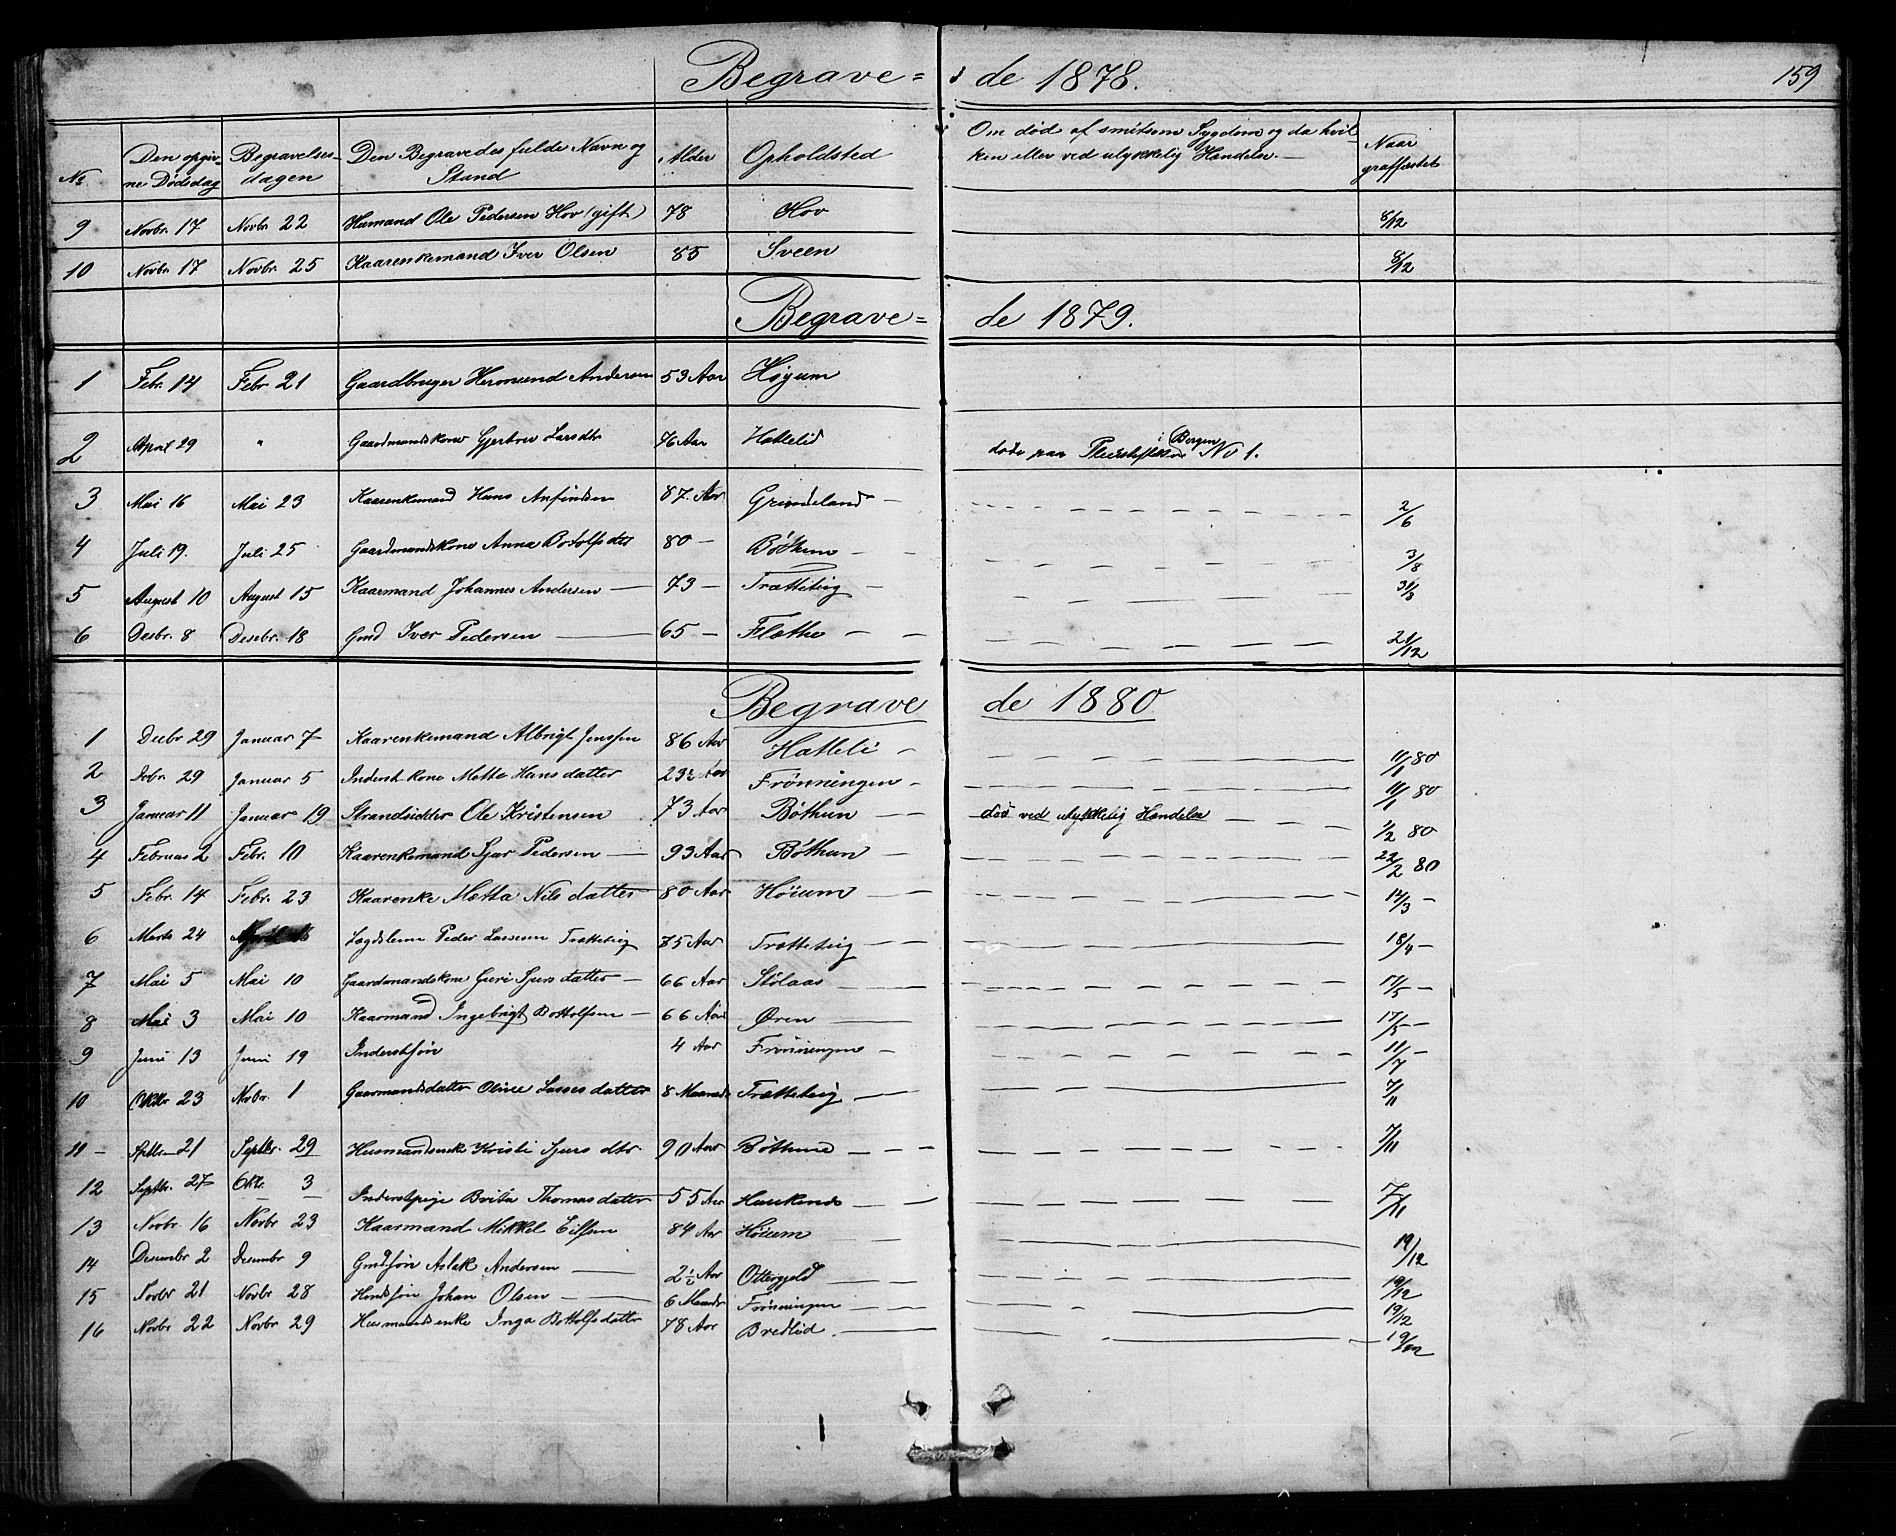 Begrave= de 1878. 159
No Den opgiv- Begravelses- Den Begravedes fulde Navn og Alder Opholdsted Om död af smitsom Sygdom og da hvil Naar
ne Dødsdag dagen Stand ken eller ved ulykkelig Handelse.— graffæstet
9 Novbr. 17 Novbr. 22 Husmand Ole Pedersen Hov (gift) 78 Hov 8/12
10 Novbr 17 Novbr. 25 Kaarenkemand Iver Olsen 85 Sveen 8/12
Begrave= de 1879.
1 Febr. 14 Febr 21 Gaardbruger Hermund Andersen 53 Aar Høyum
2 April 29 " Gaardmandskone Gjertrev Larsdtr 76 Aar Hattelid döde paa Pleiestiftelsen i Bergen No 1.
3 Mai 16 Mai 23 Kaarenkemand Hans Anfindsen 87. Aar Grindeland – 2/6
4 Juli 19. Juli 25 Gaardmandskone Anna Botolfsdtr 80 – Böthun – 3/8
5 August 10 August 15 Kaarmand Johannes Andersen — 73 – Trætteteig – 31/8
6 Desbr. 8 Desebr. 18 Gmd Iver Pedersen — 65 – Flathe – – 21/12
Begrave de 1880
1 Decbr 29 Januar 7 Kaarenkemand Albrigt Jenssen 86 Aar Hatteli – 11/1 80
2 Dcbr. 29 Januar 5 Inderstkone Metta Hansdatter 23½ Aar Frönningen – 11/1 80
3 Januar 11 Januar 19 Strandsidder Ole Kristensen 73 Aar Böthun – – död ved ulykkelig Handelse 1/2 80
4 Februar 2 Febr. 10 Kaarenkemand Sjur Pedersen — 93 Aar Böthun – 22/2 80
5 Febr. 14 Febr. 23 Kaarenke Metta Nils datter 80 Aar Höium – 14/3 –
6 Marts 24 April Lægdslem Peder Lassesen Trætteteig 75 Aar Trætteteig 18/4 –
7 Mai 5 Mai 10 Gaardmandskone Guri Sjurs datter – 66 Aar Stölaas 17/5 –
8 Mai 3 Mai 10 Kaarmand Ingebrigt Bottolfsen – 66 Aar Øren 17/5 –
9 Juni 13 Juni 19 Inderstsön 4 Aar Frönningen – 11/7 –
10 Oktbr 23 Novbr. 1 Gaarmandsdatter Oline Lasses datter 8 Maaneder Trætteteig — 7/11
11 – Septbr. 21 Septbr. 29 Husmandsenke Kristi Sjurs dtr. 90 Aar Böthun – – – 7/11
12 Septbr. 27 Oktr. 3 Inderstpige Brita Thomasdatter 55 Aar 7/11
13 Novbr. 16 Novbr 23 Kaarmand Mikkel Eilfsen 84 Aar Höium 19/12
14 Desembr 2 Desembr 9 Gmdsön Aslak Andersen — 2½ Aar Ottergjeld 19/12
15 Novbr 21 Novbr 28 Hmdsön Johan Olsen – — 6 Maaneder Frönningen 19/12
16 Novbr 22 Novbr 29 Husmandsenke Inga Bottolfsdatter 78 Aar Bredlid. 19/12